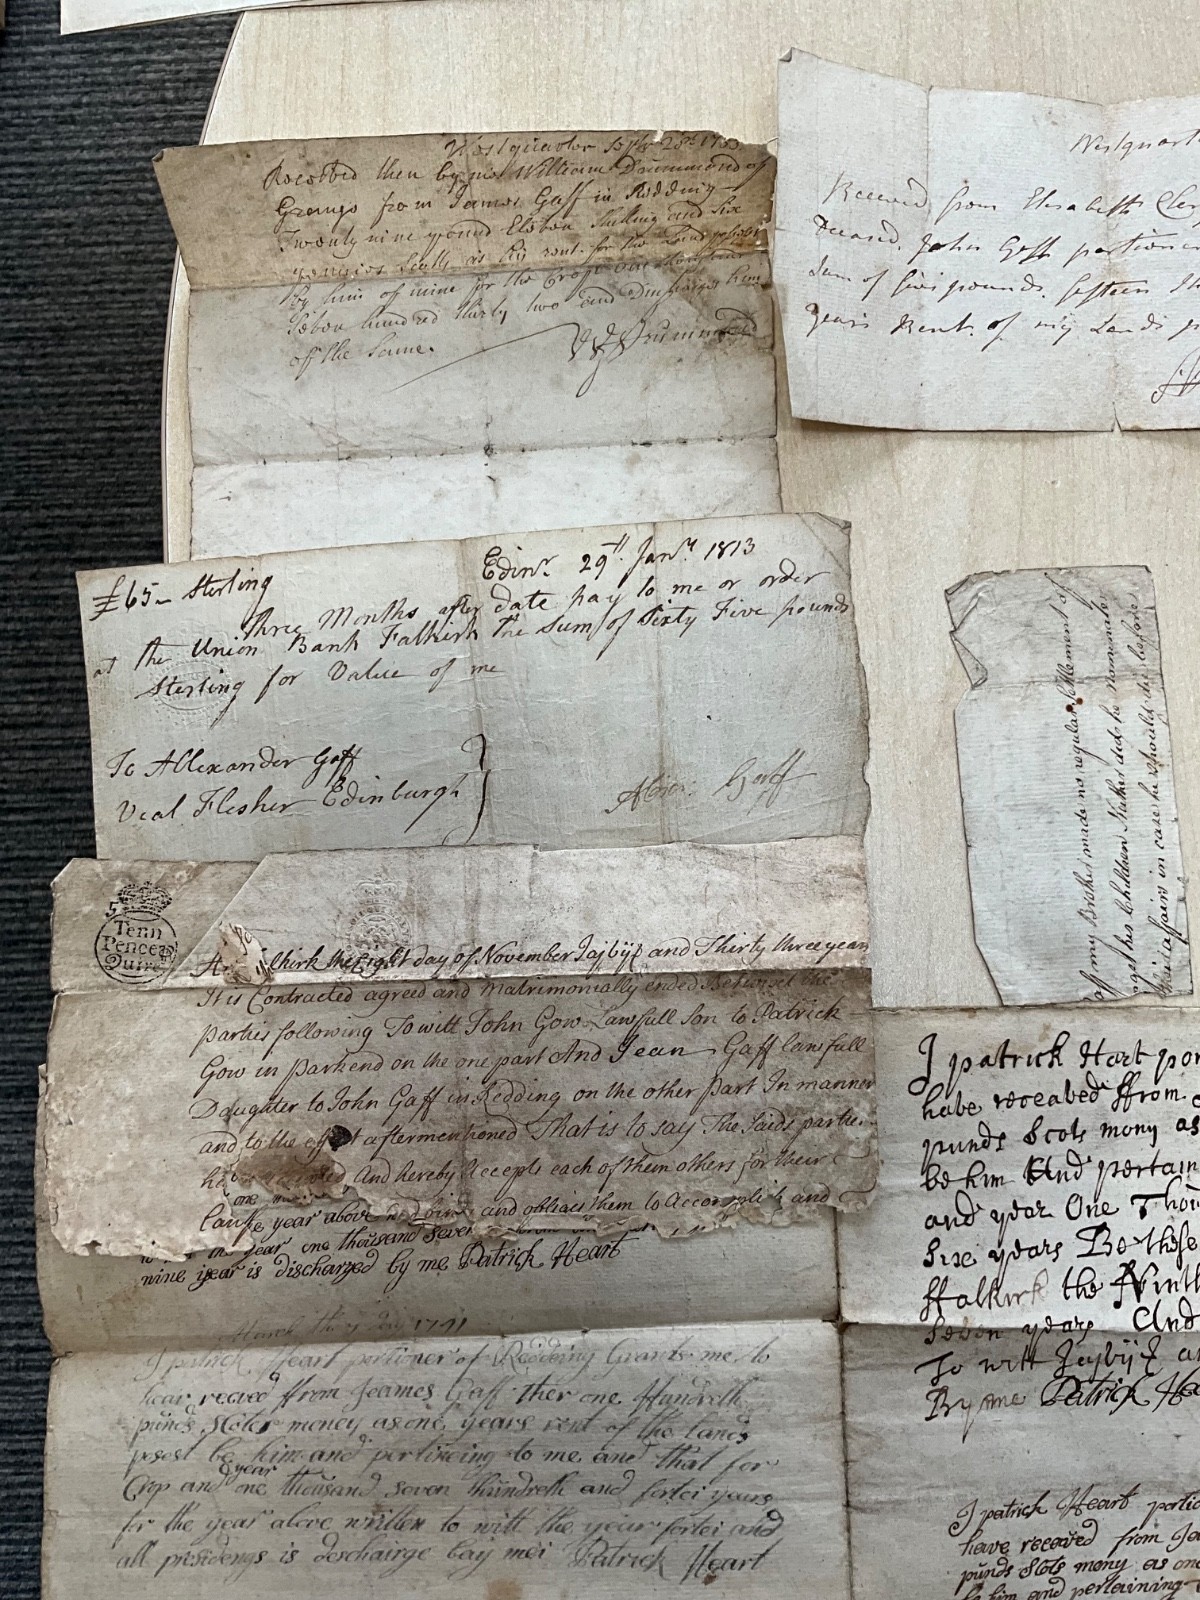 Westquarter Septr 28th 1733
Receved then by me William Drummond of
Grange from James Gaff in Redding
Twenty nine pound Eleben shilling and six
pennies Scotts as his rent for the Land
by him of mine for the Crope one thousand
Seben hundred thirty two and discharges him
off the Same.
W Drummond
Westquart
Received from Elisabeth
Deceased John Gaff portioner
Sum of five pounds fifteen
years Rent of my Lands
£65 Sterling
Edinr 29th Janry 1813
Three Months after date pay to me or order
at the Union Bank Falkirk the Sum of Sixty Five pounds
Sterling for Value of me
To Allexander Gaff
Veal Flesher Edinburgh
Alexr Gaff
5
Tenn
Pence pr
Quire
At the Eight day of November Jajbijc and Thirty three years
It is Contracted agreed and matrimonially ended Betwixt the
parties following To witt John Gow Lawfull Son to Patrick
Gow in Parkend on the one part And Jean Gaff lawfull
Daughter to John Gaff in Redding on the other Part In manner
and to the effect aftermentioned That is to say The Saids parties
have and hereby Accepts each of them others for their
one
year above and obliges them to Accomplish and
the year one thousand seven
nine year is discharged by me Patrick Heart
March 1741
I patrick Heart portioner of Redding Grants me to
hear receved from Jeames Gaff ther one Hundreth
punds Stoles money as one years rent of the Lands
posest be him and pertineing to me and that for
year
Crop and one thousand seven hundreth and fortei years
for the year above written to witt the year fortei and
all presidengs is descharge bay mei Patrick Heart
of my Brother made no regular Settlement of
his Children Neither did he nominate
their affairs in case he should die before
I patrick Hart por
have receabed ffrom
punds Scots mony as
be him And pertain
and year One Thou
Sixe years Be these
ffalkirk the Ninth
Seben years And
To witt Jajbijc a
By me Patrick Hea
I patrick Heart portio
have receaved from Jea
punds Stots mony as one
be him and pertaining